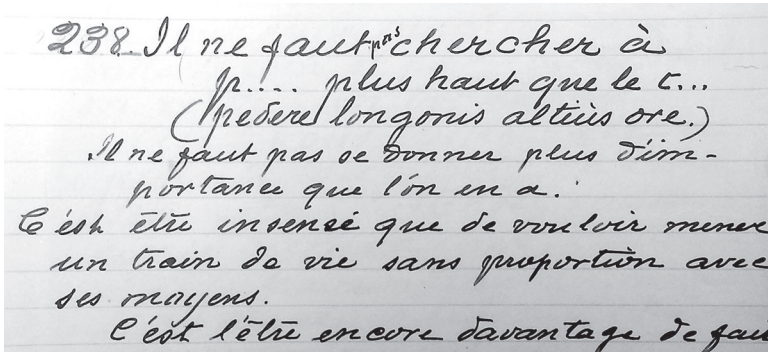 238. Il ne faut pas chercher à
p.... plus haut que le c...
(pedere longonis altiùs ore.)
Il ne faut pas se donner plus d'im-
portance que l'on en a.
C'est être insensé que de vouloir mener
un train de vie sans proportion avec
ses moyens.
C'est l'être encore davantage de fai